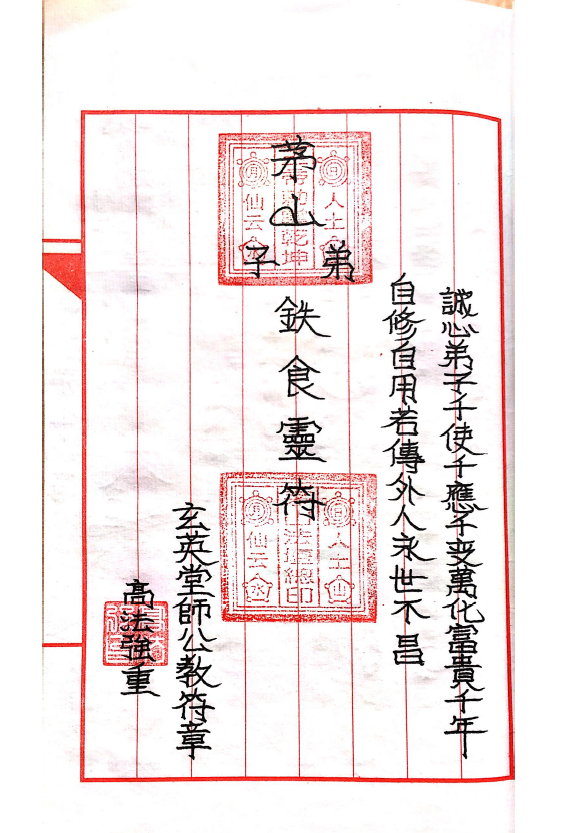 誠心弟子千使千應千变萬化富貴千年
自修自用若傳外人永世不昌
茅山弟子鉄食靈符
玄英堂師公教符章
高法強重
乾坤
仙云
總印
仙云